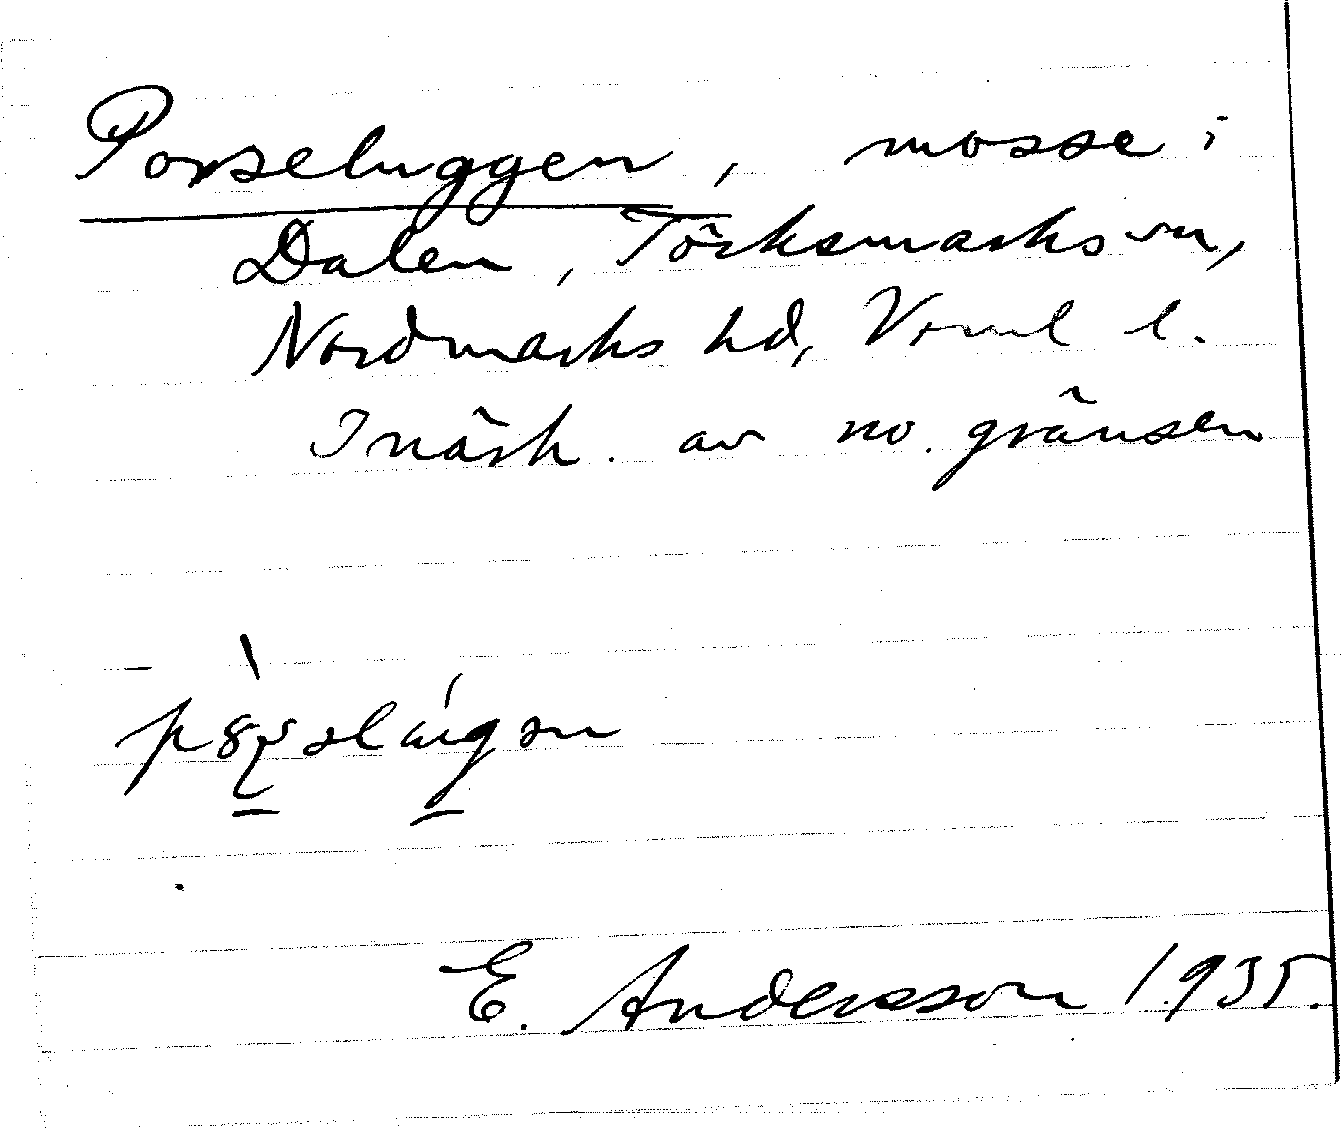 Porseluggen, mosse i
Dalen, Töcksmarks sn,
Nordmarks hd, Verml l.
I närh. av no. gränsen
E. Andersson 1935.